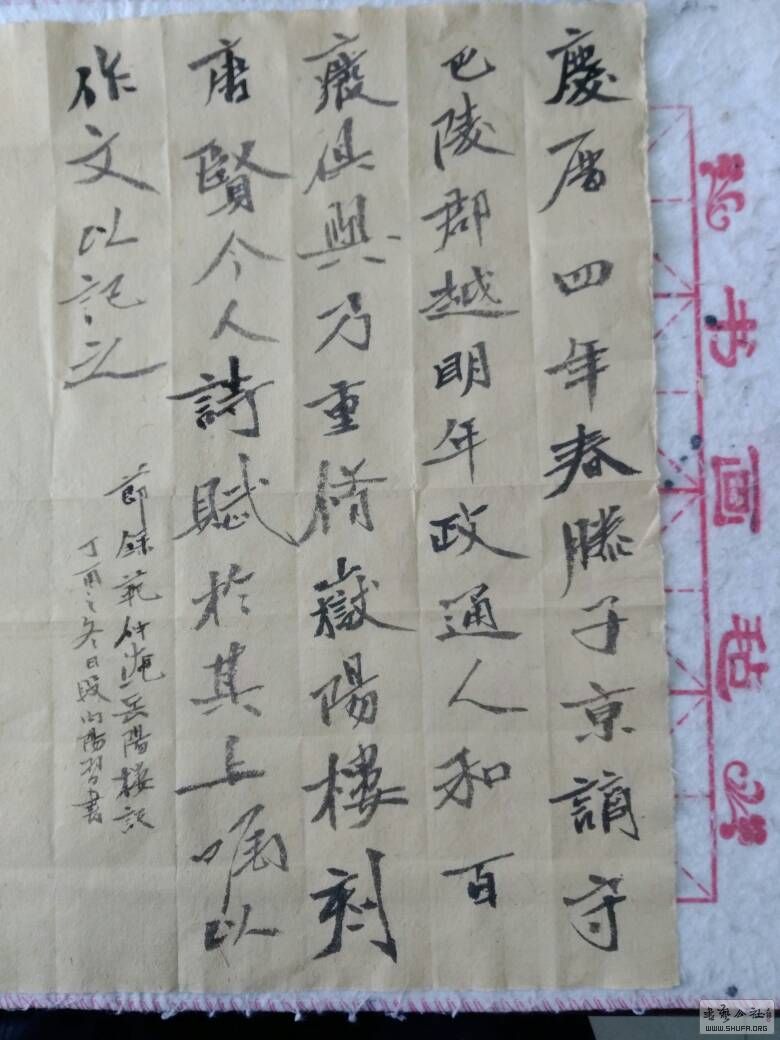 慶曆四年春滕子京謫守
巴陵郡越明年政通人和百
癈俱興乃重修嶽陽樓刻
唐賢今人詩賦於其上嘱以
作文以記之
節錄範仲淹岳陽樓記
丁酉之冬日段向陽習書
书画毡
書藝公社
WWW.SHUFA.ORG